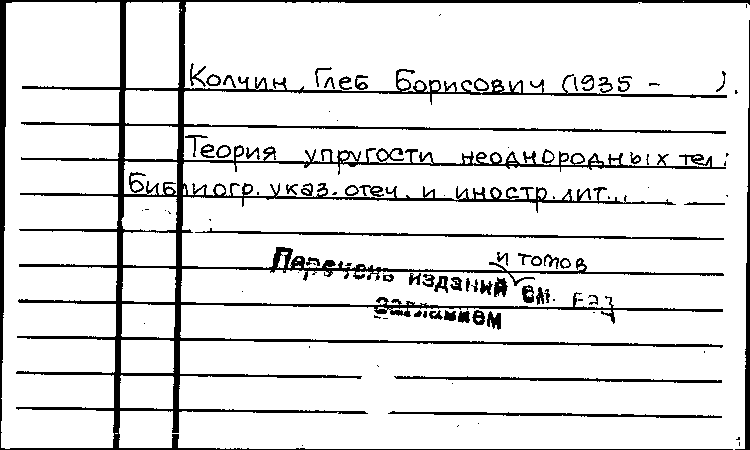 Колчин, Глеб Борисович (1935 -      ).
Теория упругости неоднородных тел:
Библиогр. указ. отеч. и иностр. лит...
и томов
Перечень изданий см.
заглавием